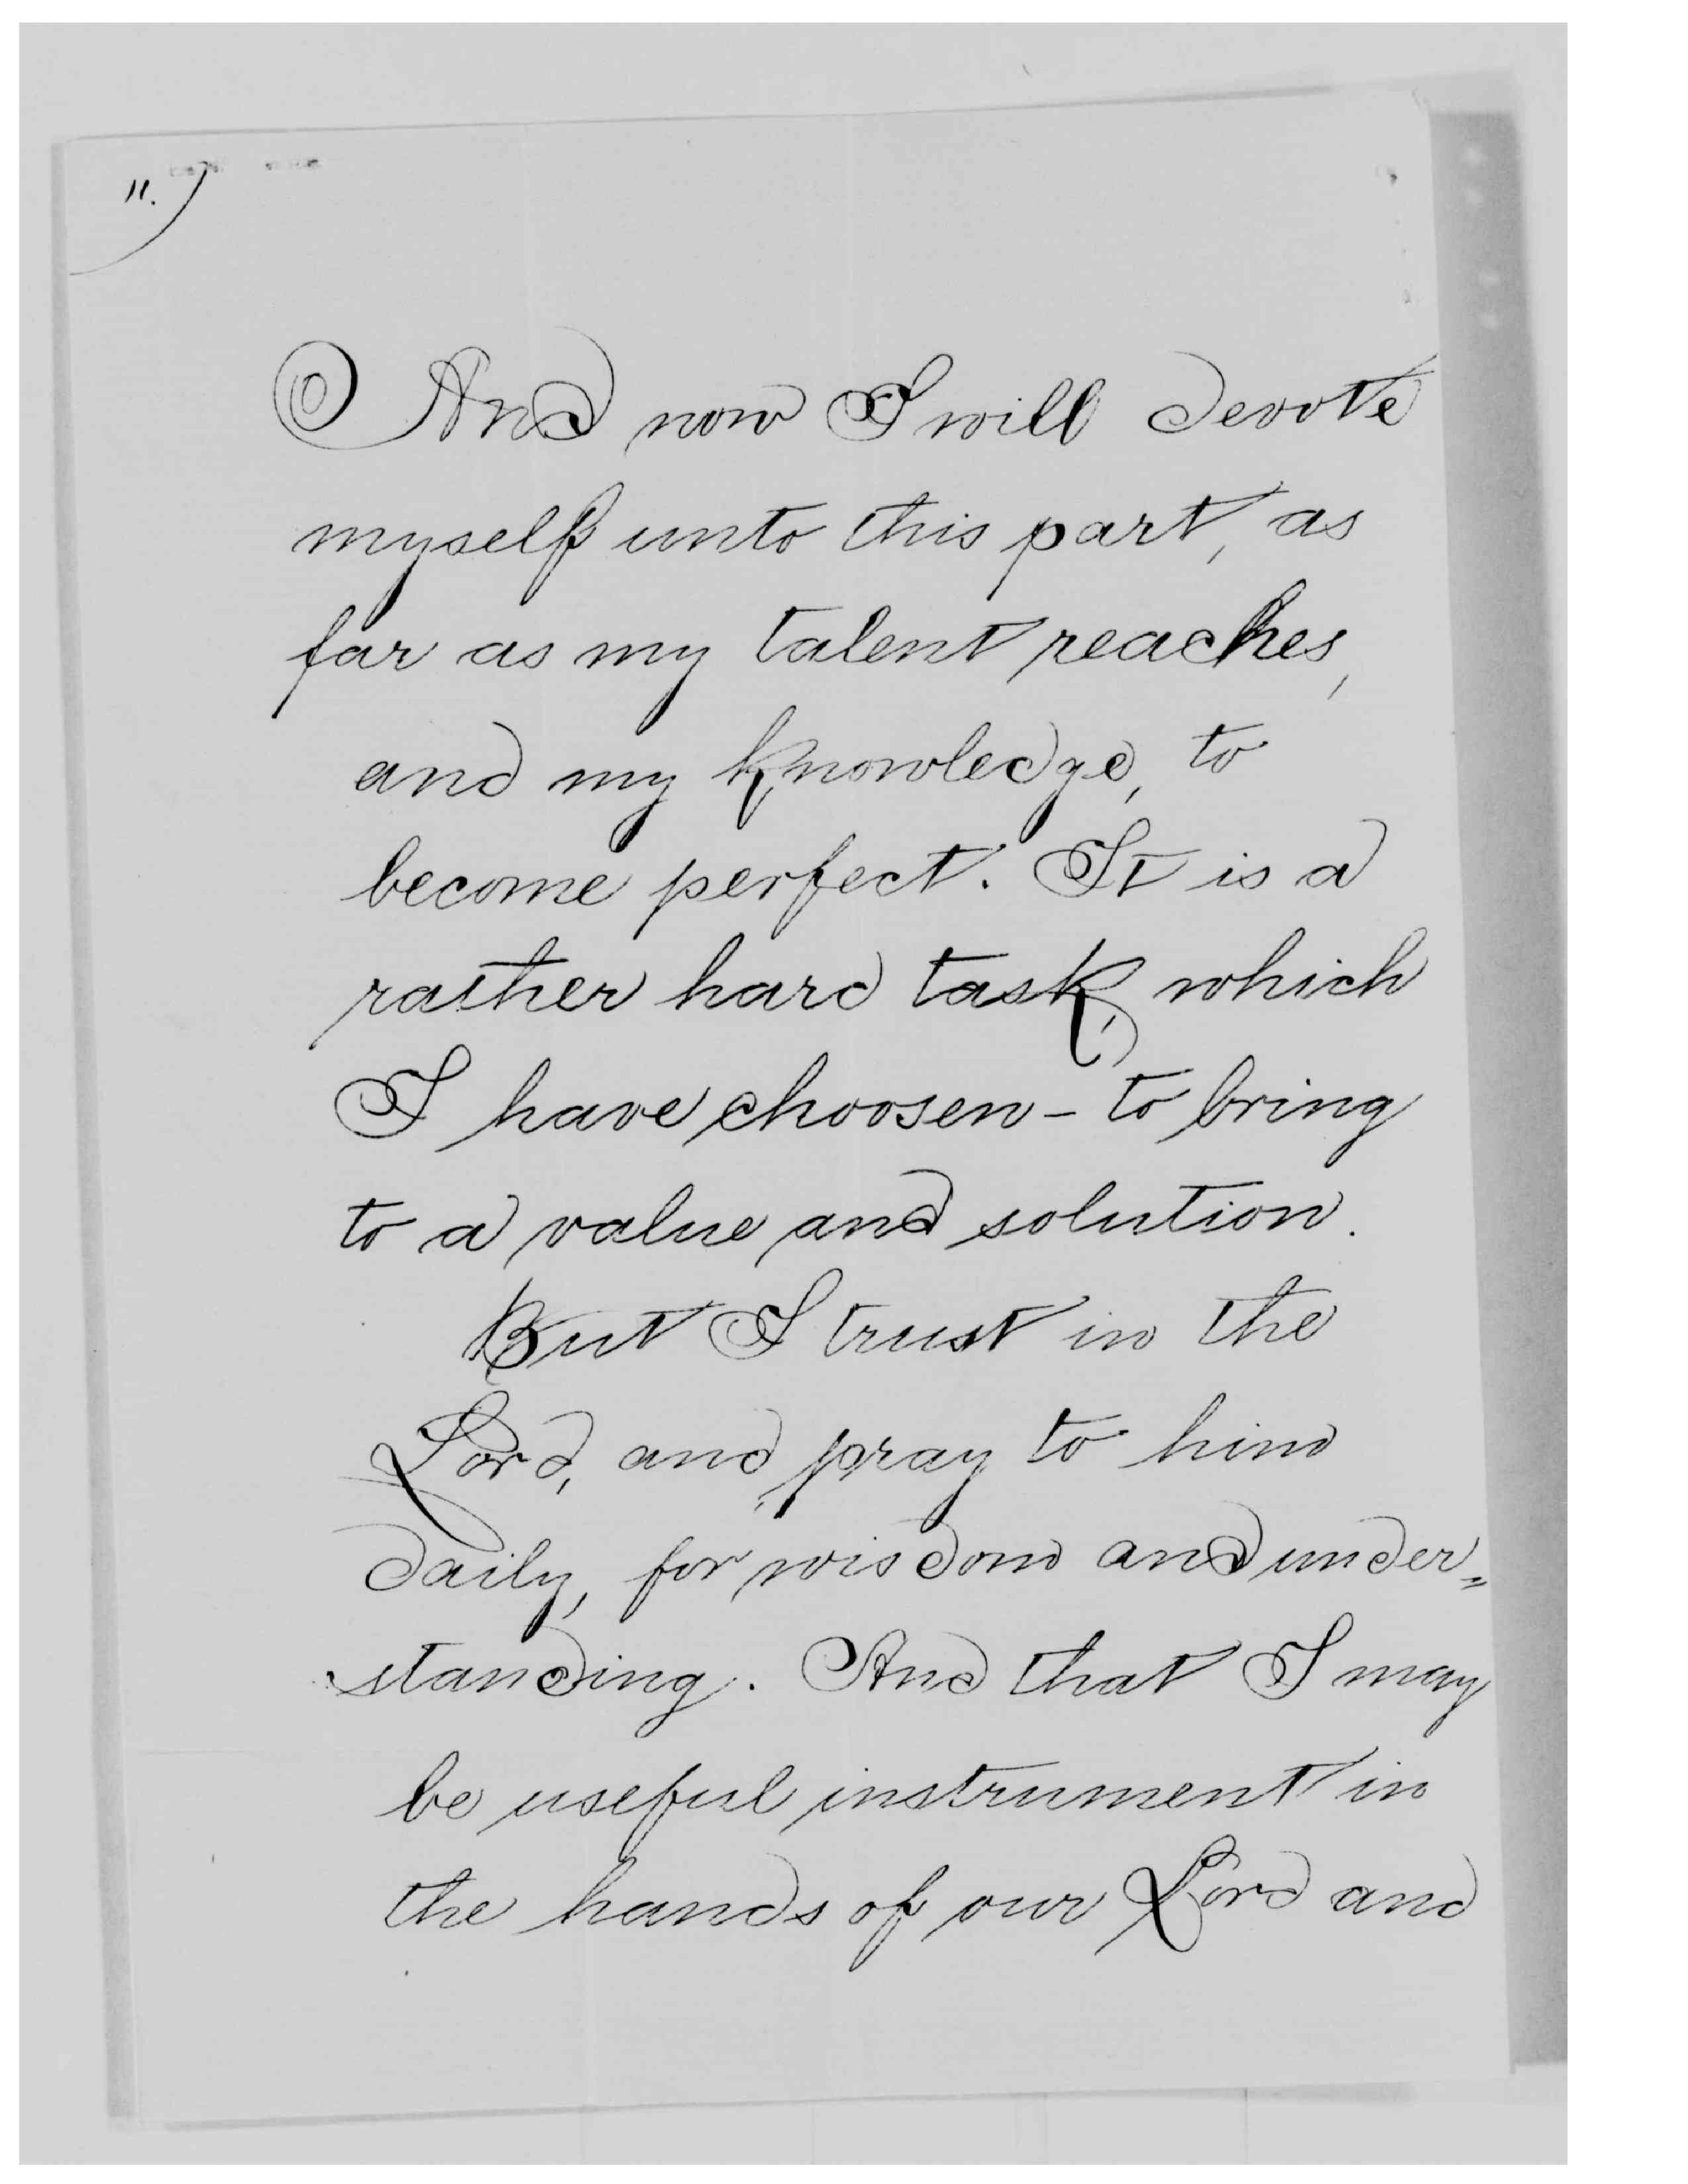 11.)
And now I will devote
myself unto this part, as
far as my talent reaches,
and my knowledge, to
become perfect. It is a
rather hard task, which
I have choosen - to bring
to a value and solution.
But I trust in the
Lord, and pray to him
daily, for wisdom and under„
standing. And that I may
be useful instrument in
the hands of our Lord and